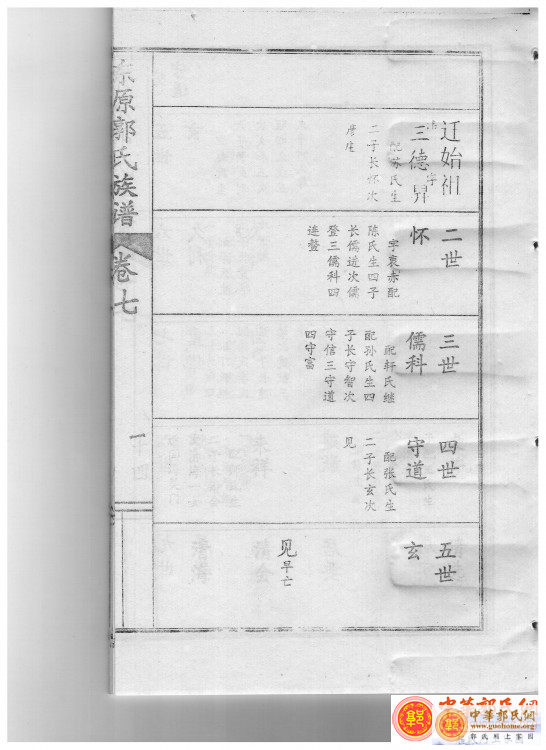 东原郭氏族谱
卷七
一
迁始祖
三德昇
配苏氏生
二子长怀次
二世
怀
字衷赤配
陈氏生四子
长儒进次儒
登三儒科四
进鳌
三世
儒科
配轩氏继
配孙氏生四
子长守智次
守信三守道
四守富
四世
守道
配张氏生
二子长玄次
见
五世
玄
见早亡
中华郭氏网
www.guohome.org